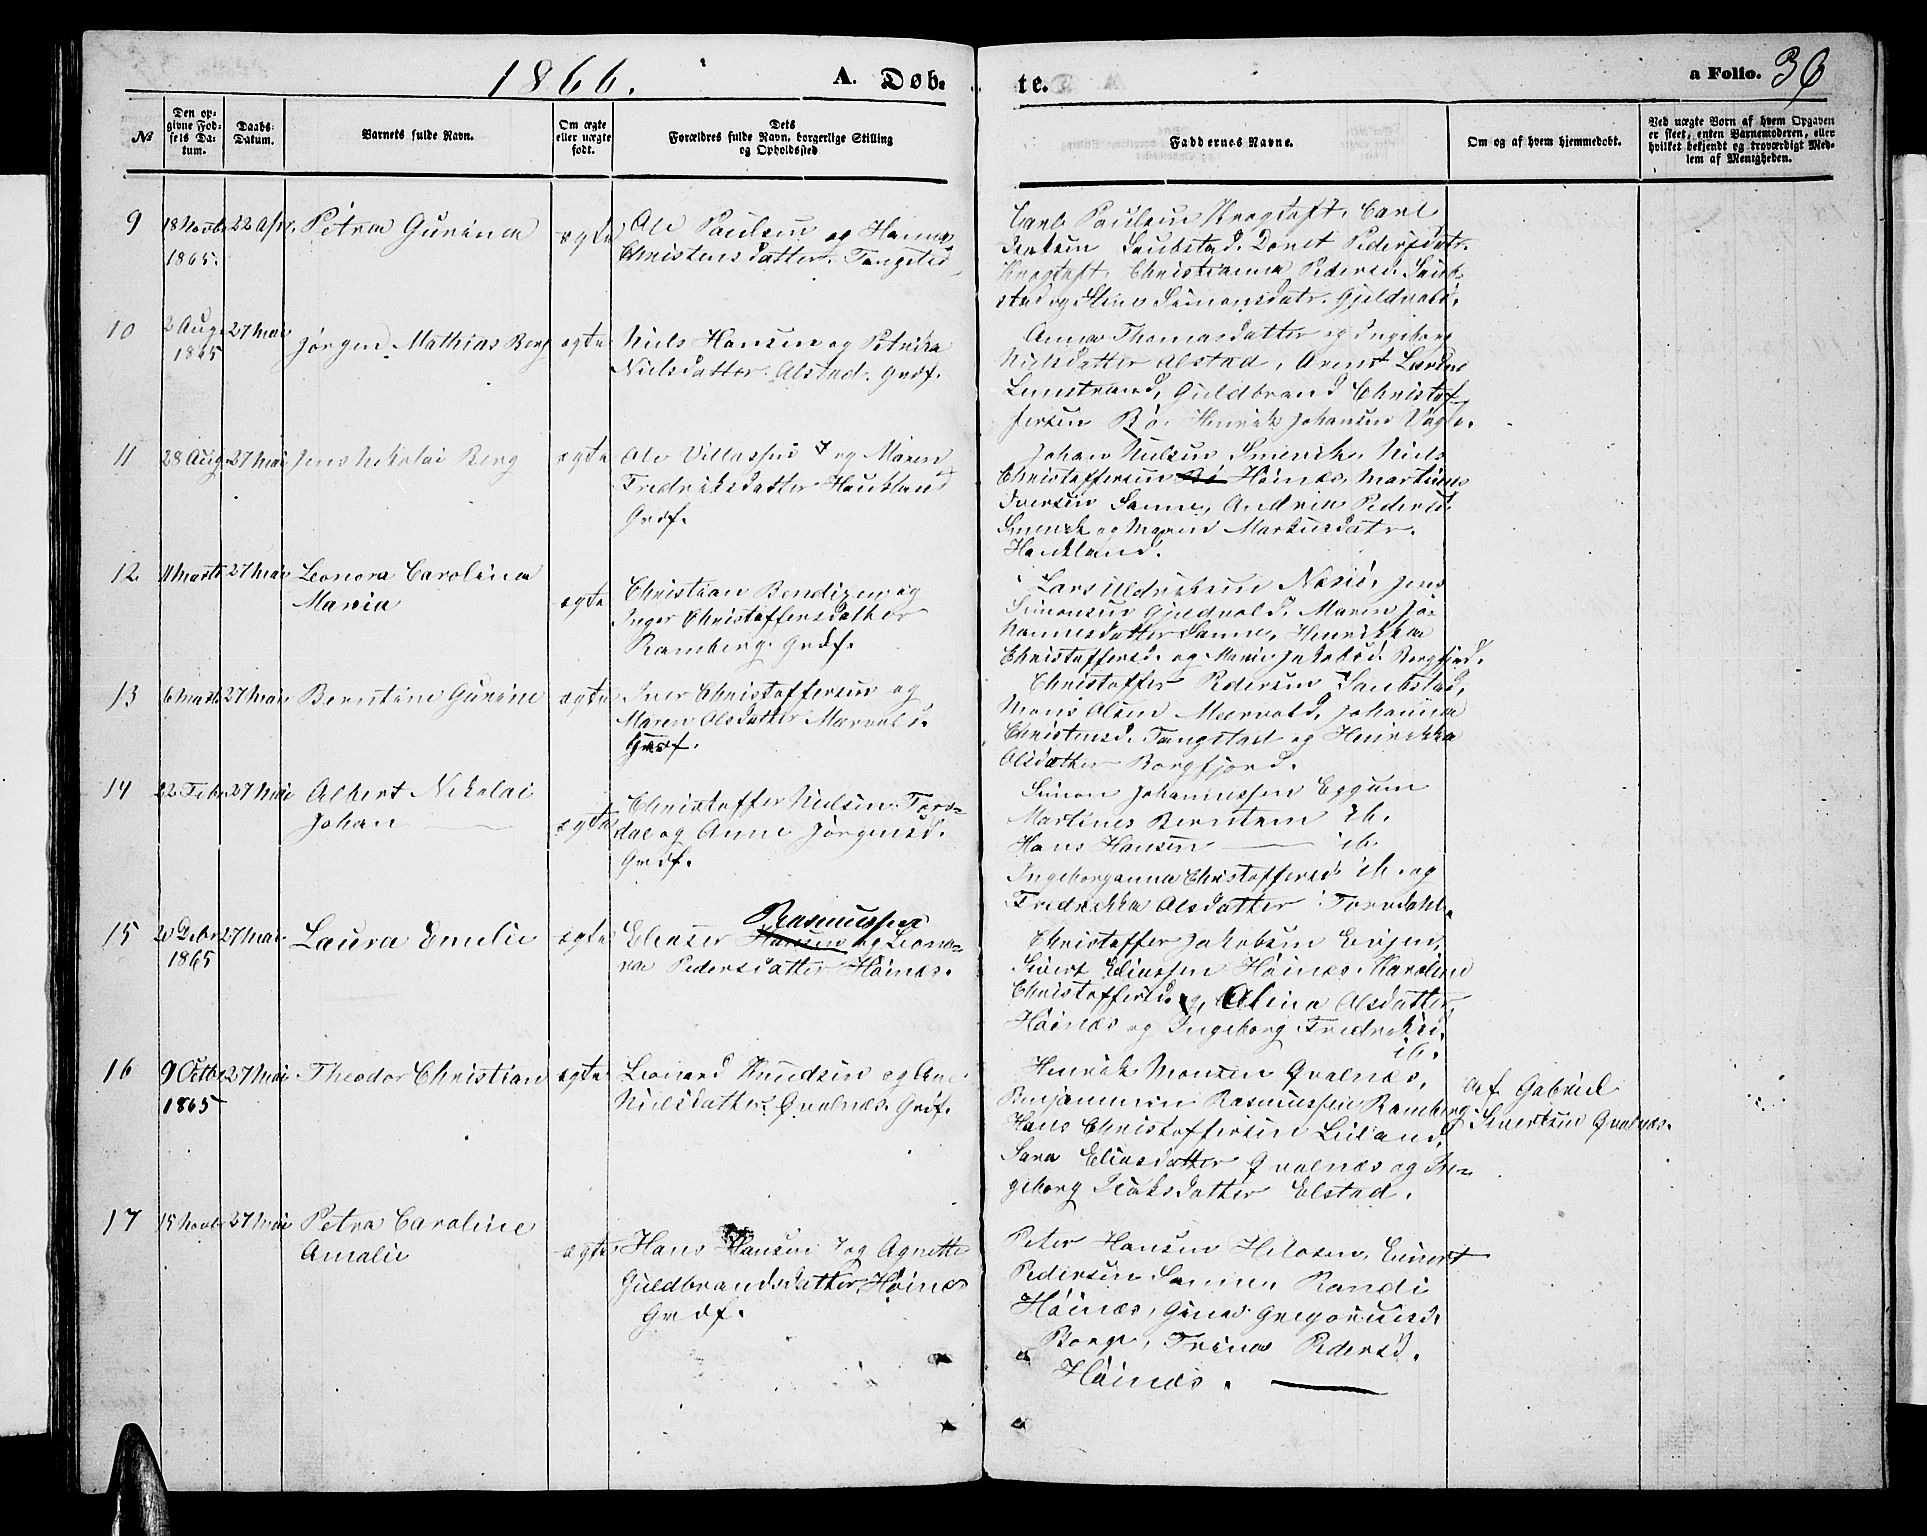 1866.
A. Døb-
te.
a Folio. 36
№
Den op-
givne Fød-
sels Da-
tum.
Daabs-
Datum.
Barnets fulde Navn.
Om ægte
eller uægte
født.
Dets
Forældres fulde Navn, borgerlige Stilling
og Opholdssted
Faddernes Navne.
Om og af hvem hjemmedøbt.
Ved uægte Børn af hvem Opgaven
er skeet, enten Barnemoderen, eller
hvilket bekjendt og troværdigt Med-
lem af Menigheden.
9
18 Novbr
1865.
22 Apr.
Petra Gurina
ægte
Ole Paulsen og Hanna
Christensdatter. Tangsted
Carl Paulsen Krogtoft, Carl
Saubstad, Doret Pedersdatr.
Krogtoft, Christianna Pedersd. Saub-
stad og Stina Simonsdatr. Gjeldvold.
10
2 Aug.
1865
27 Mai
Jørgen Mathias Berg
ægte
Niels Hansen og Petrika
Nielsdatter. Alstad. Grdf.
Anna Thomasdatter og Ingeborg
Nielsdatter Alstad, Arent
Limstrand, Guldbrand Christof-
fersen Bø, Henrik Johansen Vagle.
11
28 Aug.
27 Mai
Jens Nikolai Berg
ægte
Ole Villassen † og Maren
Fredriksdatter Haukland
Grdf.
Johan Nielsen Smerik, Niels
Christoffersen Bø Høinæs, Martinus
Iversen Sanne, Andria Pedersd.
Smerik og Maren Markusdatr.
Haukland.
12.
11 Marts
27 Mai
Leonora Carolina
Maria
ægte
Christian Bendixen og
Inger Christoffersdatter
Ramberg. Grdf.
Lars Uldriksen Næsie, Jens
Simonsen Gjeldvold, Maren Jo-
hannesdatter Sanne, Henrikka
Christoffersd. og Marie Jakobsd. Borgfjord.
13
6 Marts
27 Mai
Berntine Gurine
ægte
Iver Christoffersen og
Maren Olsdatter Mærvold.
Grdf.
Christoffer Pedersen Saubstad,
Mons Olsen Mærvold, Johanna
Christensd. Tangstad og Henrikka
Olsdatter Borgfjord.
14
22 Febr
27 Mai
Albert Nikolai
Johan
ægte
Christoffer Nielsen Torv-
dal og Anne Jørgensd.
Grdf.
Simon Johannessen Eggum
Martines Berntsen ib.
Hans Hansen ib.
Ingeborganna Christoffersd. ib. og
Fredrikka Olsdatter Torvdahl.
15
20 Debr
1865
27 Mai
Laura Emelie
ægte
Rasmussen
Eliaser Hansen og Leono-
ra Pedersdatter Høinæs.
Christoffer Jakobsen Evjen,
Sivert Eliassen Høinæs, Karoline
Christoffersd. og, Alina Olsdatter
Høinæs og Ingeborg Fredriksd.
ib.
16
9 Octbr
1865
27 Mai
Theodor Christian
ægte
Leonard Knudsen og Ane
Nielsdatter. Qvalnæs. Grdf.
Henrik Monsen Qvalnæs,
Benjammin Rasmussen Ramberg
Hans Christoffersen Leiland,
Sara Eliasdatter Qvalnæs og In-
geborg Isaksdatter Elstad.
Af Gabriel
Sivertsen Qvalnæs.
17
15 Novbr
27 Mai
Petra Caroline
Amalie
ægte
Hans Hansen † og Agnette
Guldbrandsdatter, Høinæs
Grdf.
Peter Hansen Helosen, Eivert
Pedersen Sanne, Randi
Høinæs, Gina Gregoriusd.
Borge, Trina Pedersd.
Høinæs.